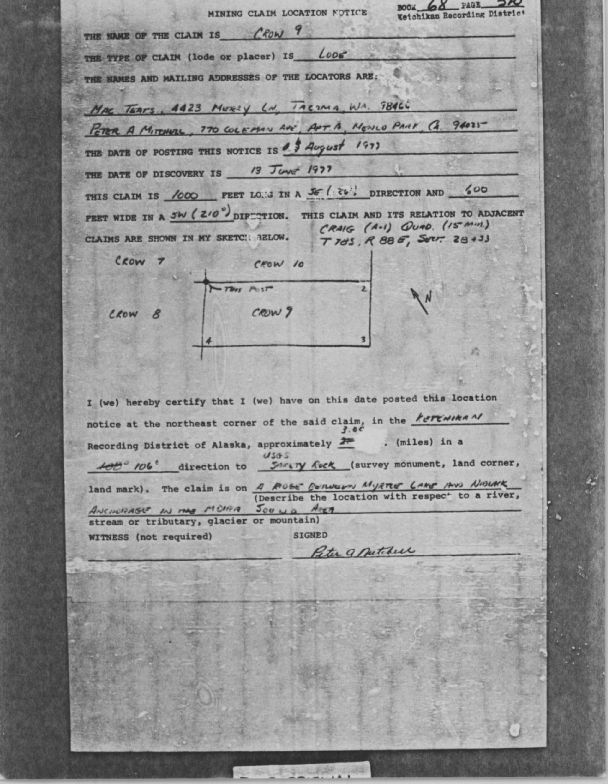 BOOK 68 PAGE
MINING CLAIM LOCATION NOTICE
Ketchikan Recording District
THE NAME OF THE CLAIM IS CROW 9
THE TYPE OF CLAIM (lode or placer) IS LODE
THE NAMES AND MAILING ADDRESSES OF THE LOCATORS ARE:
MAC TEATS, 4423 LN, TACOMA, WA. 98466
PETER A MITCHELL, 770 COLEMAN AVE, APT A, MENLO PARK CA. 94025
THE DATE OF POSTING THIS NOTICE IS August 1977
THE DATE OF DISCOVERY IS 13 JUNE 1977
THIS CLAIM IS 1000 FEET LONG IN A SE DIRECTION AND 600
FEET WIDE IN A SW (210°) DIRECTION. THIS CLAIM AND ITS RELATION TO ADJACENT
CLAIMS ARE SHOWN IN MY SKETCH BELOW.
CRAIG (A-1) QUAD. (15 MIN)
T78S, R 88E, 28+33
CROW 7 CROW 10
1 THIS POST 2
CROW 8 CROW 9 N
4 3
I (we) hereby certify that I (we) have on this date posted this location
notice at the northeast corner of the said claim, in the KETCHIKAN
Recording District of Alaska, approximately . (miles) in a
106° direction to USGS SAFETY ROCK (survey monument, land corner,
land mark). The claim is on A RIDGE BETWEEN MYRTLE LAKE AND NIBLACK
(Describe the location with respect to a river,
ANCHORAGE IN THE MOIRA SOUND AREA
stream or tributary, glacier or mountain)
WITNESS (not required) SIGNED
Peter A Mitchell